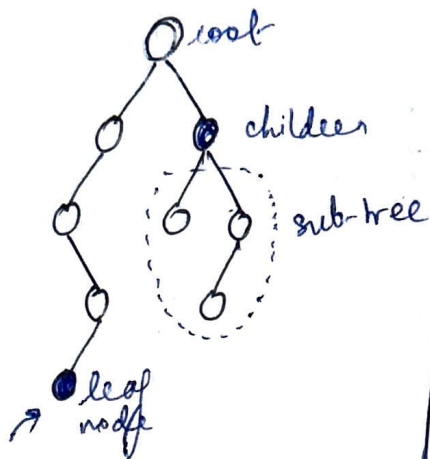 root
children
sub-tree
leaf
node